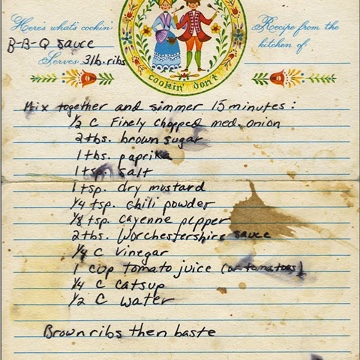 Here's what's cookin'
Recipe from the
B-B-Q sauce
kitchen of
Serves 3 lb. ribs
cookin' don't
Mix together and simmer 15 minutes:
1/2 C Finely chopped med. onion
2 tbs. brown sugar
1 tbs. paprika
1 tsp. salt
1 tsp. dry mustard
1/4 tsp. chili powder
1/8 tsp. cayenne pepper
2 tbs. Worchestershire sauce
1/4 C vinegar
1 cup tomato juice (or tomatoes)
1/4 C catsup
1/2 C water
Brown ribs then baste